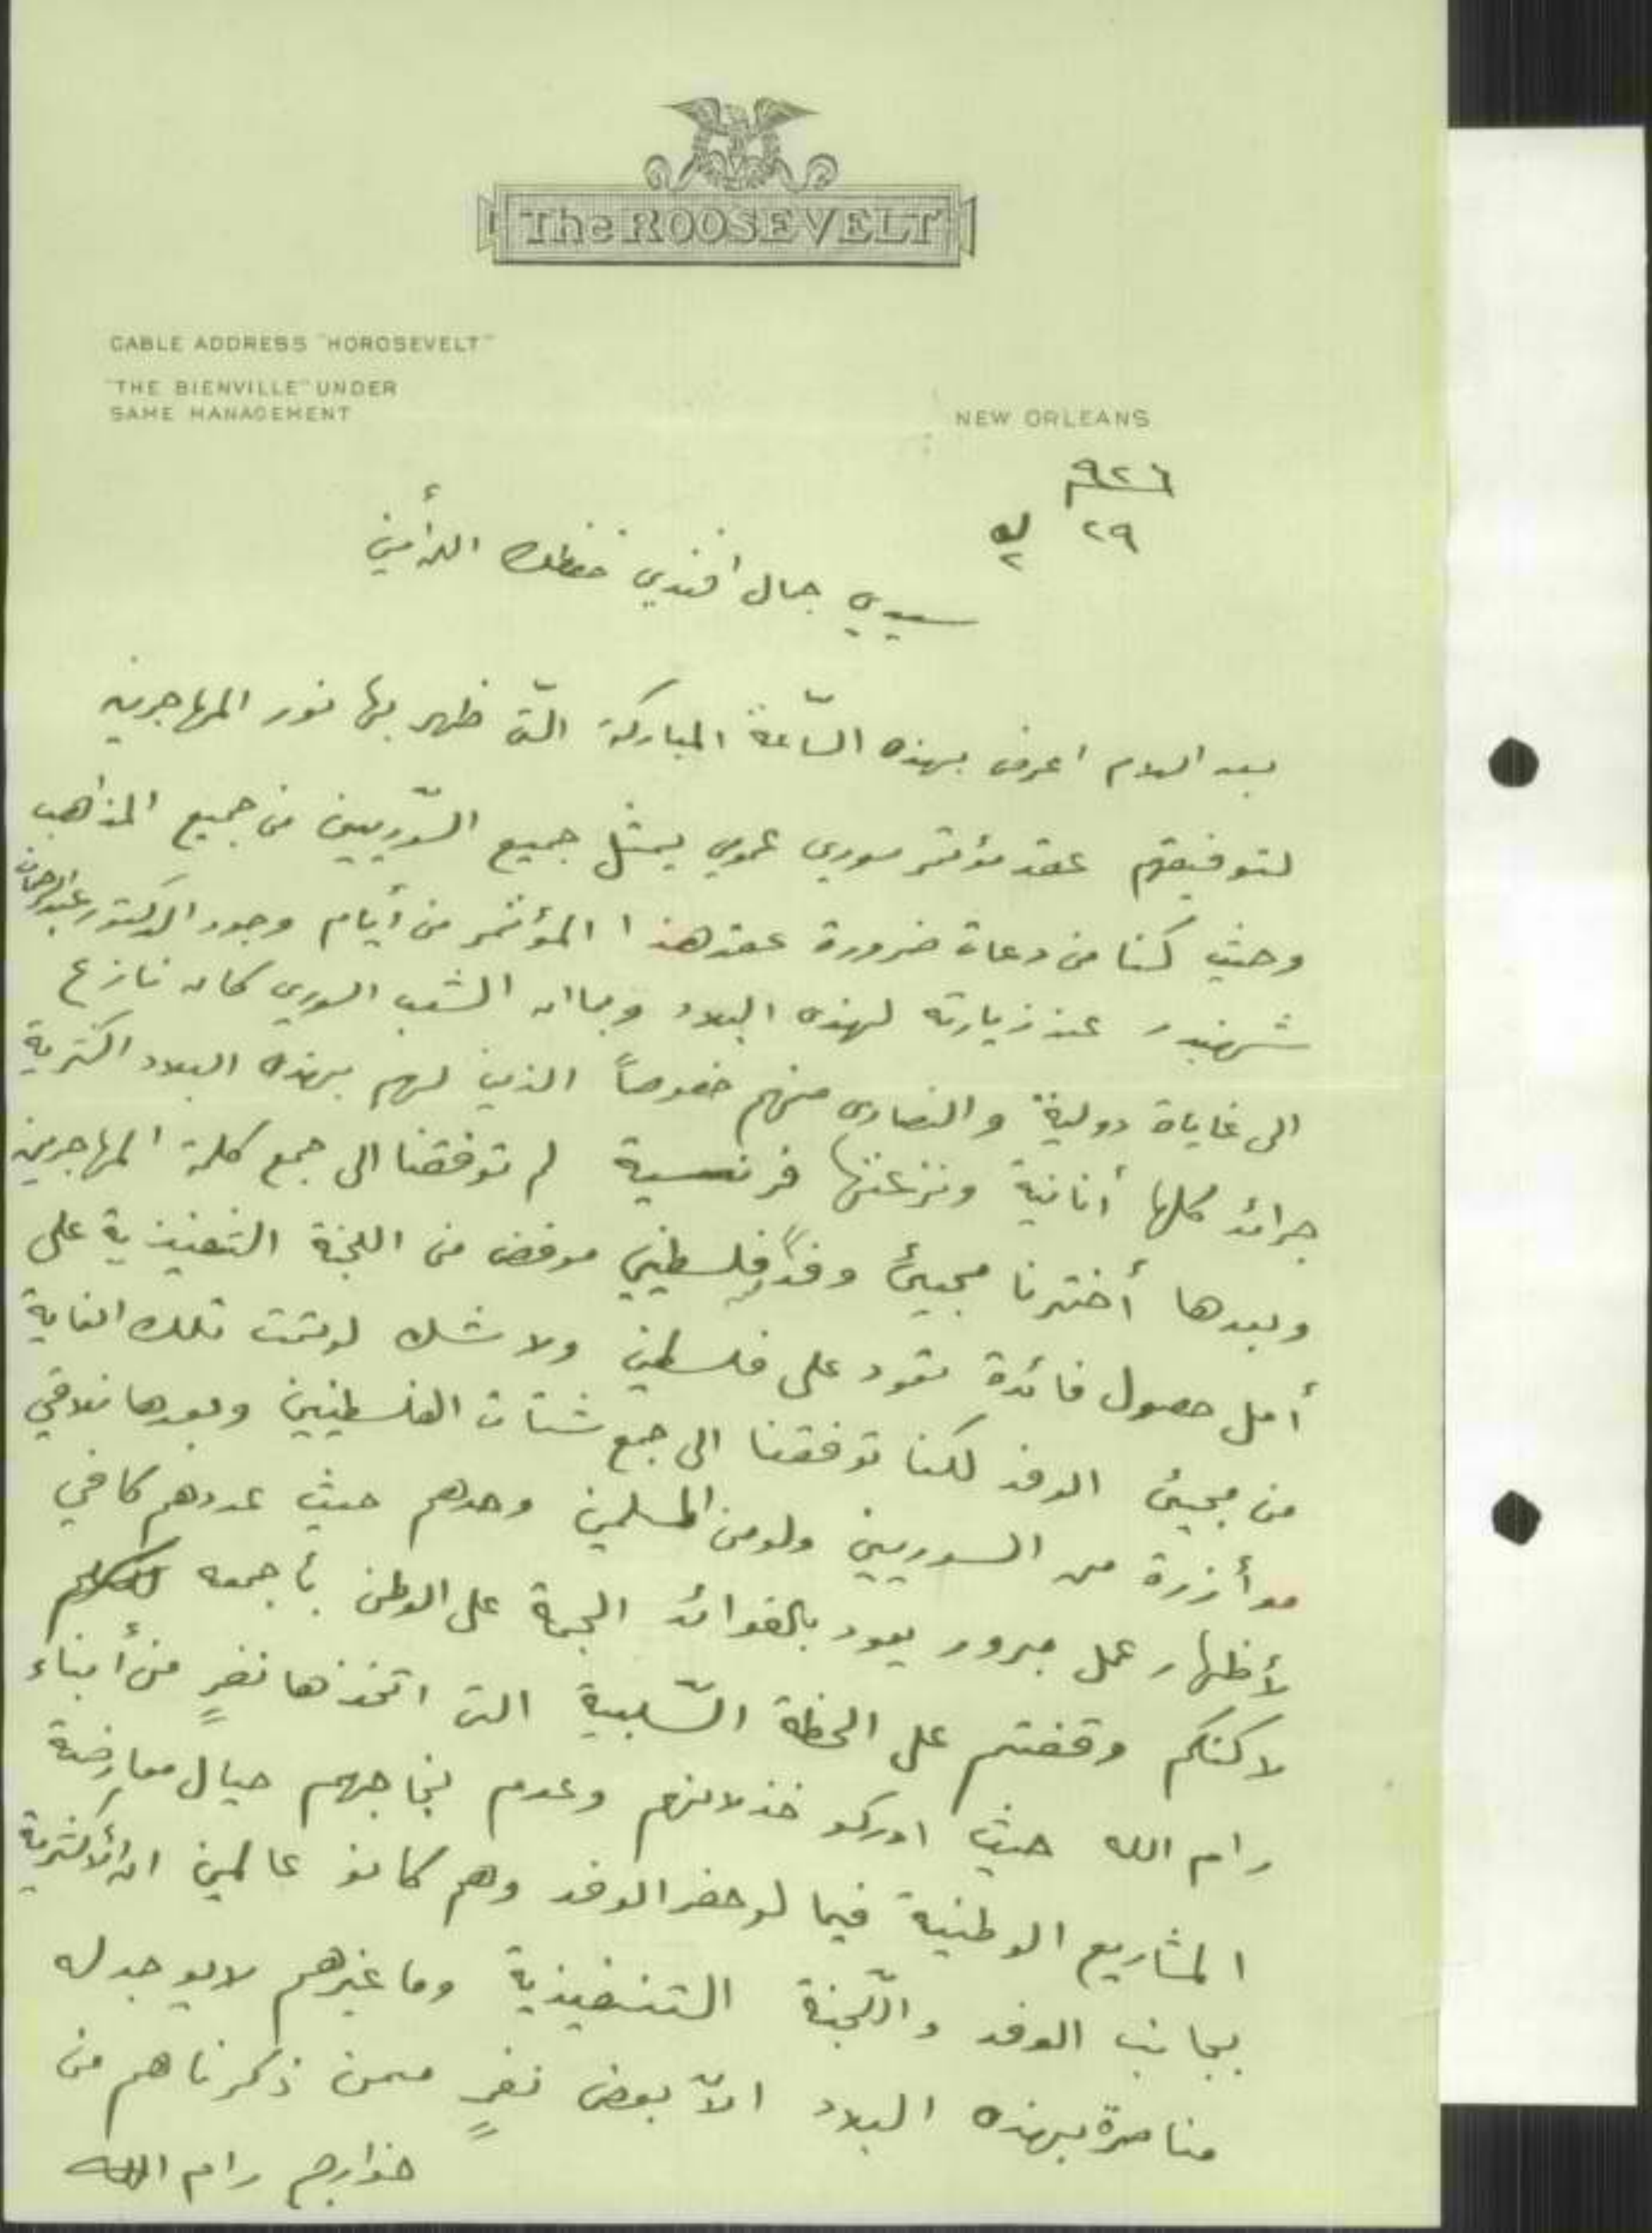 The ROOSEVELT
CABLE ADDRESS "HOROSEVELT"
"THE BIENVILLE" UNDER
SAME MANAGEMENT
NEW ORLEANS
٩٢٦
٢٩ ك٢
سيدي جمال افندي حفظك الله أمين
بعد السلام اعرض بهذه السّاعة المباركة التّي ظهر بها نور المهاجرين
لتوفيقهم عقد مؤتمر سوري عمومي يمثل جميع السّوريين من جميع المذاهب
وحيث كنا من دعات ضرورة عقد هذا المؤتمر من أيام وجود الدكتور عبدالرحمان
شهبندر عند زيارته لهذه البلاد وبما ان الشعب السوري كان نازع
الى غاياة دولية والنصارى منهم خصوصاً الذين لهم بهذه البلاد اكثرية
جرائد كلها أنانية ونزعتها فرنسية لم توفقنا الى جمع كلمة المهاجرين
وبعدها أخترنا مجيئ وفداً فلسطيني مرفض من اللجنة التنفيذية على
أمل حصول فائدة تعود على فلسطين ولا شك لو تمت تلك الغاية
من مجيئ الوفد لكنا توفقنا الى جمع شتات الفلسطينيين وبعدها نلاقي
موأزرة من السوريين ولو من المسلمين وحدهم حيث عددهم كافي
لأظهار عمل مبرور يعود بالفوائد الجمة على الوطن بأجمعه
لاكنكم وقفتم على الخطة السّلبية التي اتخذها نفرٍ من أبناء
رام الله حيث ادركو خذلانهم وعدم نجاحهم حيال معارضة
المشاريع الوطنية فيما لو حضر الوفد وهم كانو عالمين ان الأكثرية
بجانب الوفد واللّجنة التنفيذية وما غيرهم لا يوجد له
مناصرة بهذه البلاد الاّ بعض نفرٍ ممن ذكرناهم من
خوارج رام الله